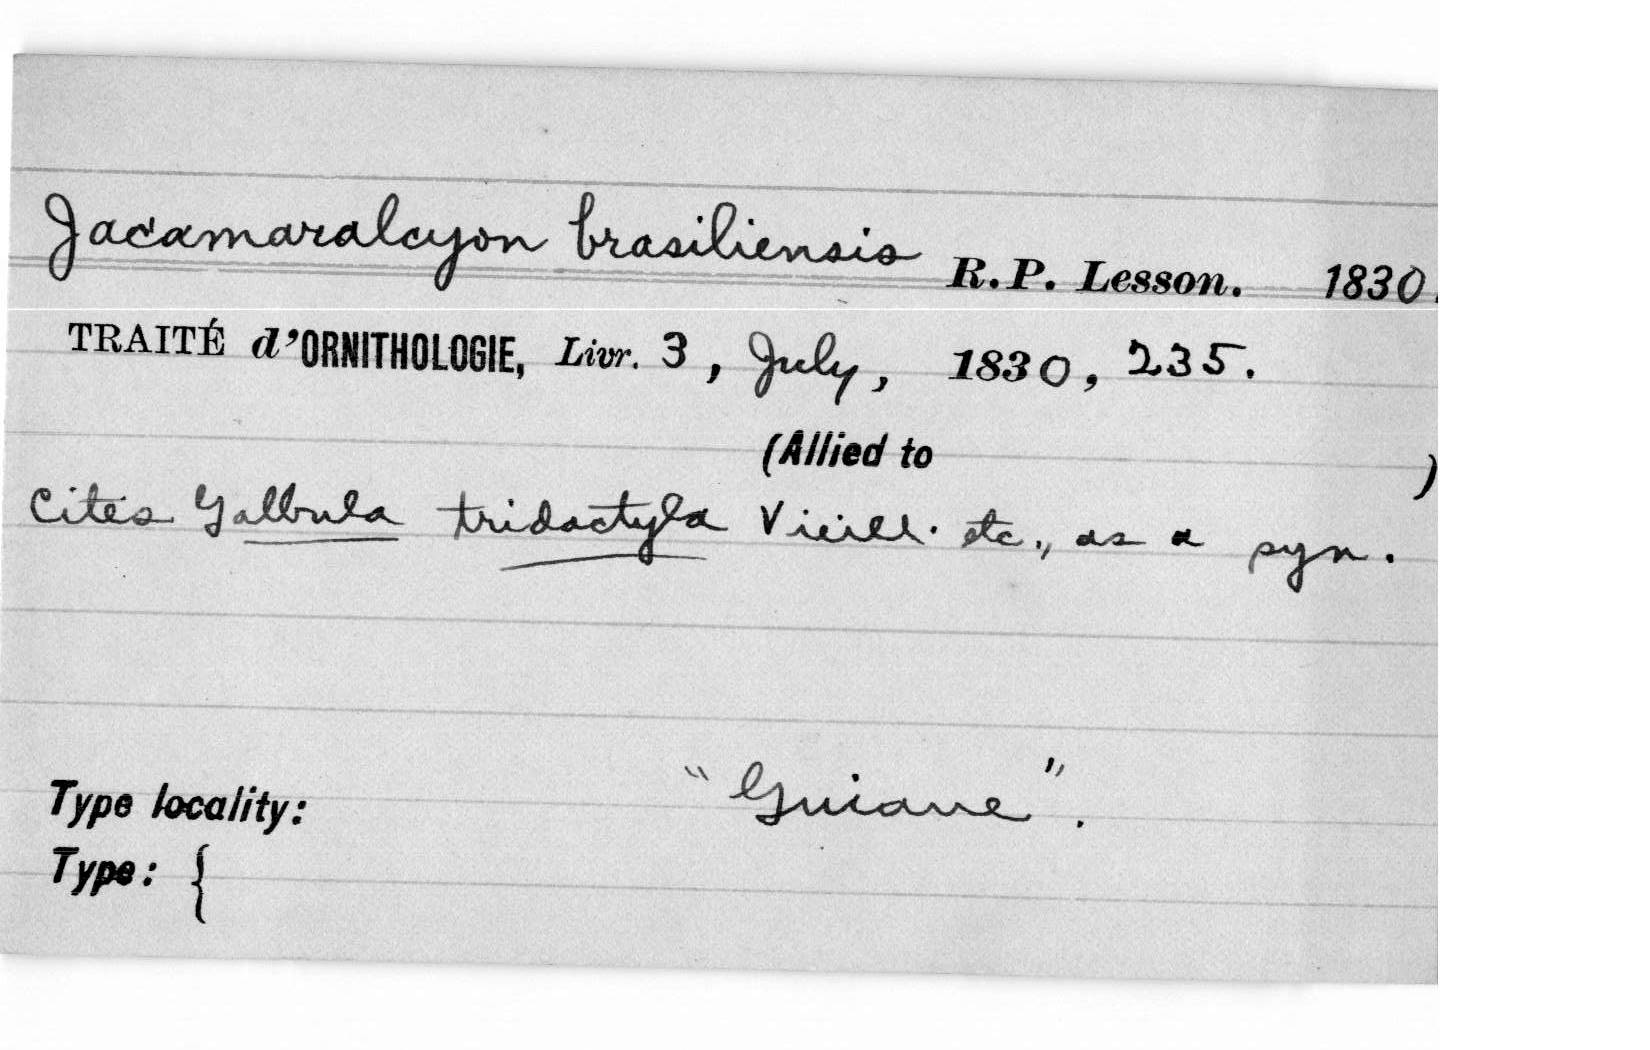 Jacamaralcyon brasiliensis R.P. Lesson. 1830.
TRAITÉ d'ORNITHOLOGIE, Livr. 3, July, 1830, 235.
(Allied to )
Cites Galbula tridactyla Vieill. etc., as a syn.
Type locality: "Guiane".
Type: {